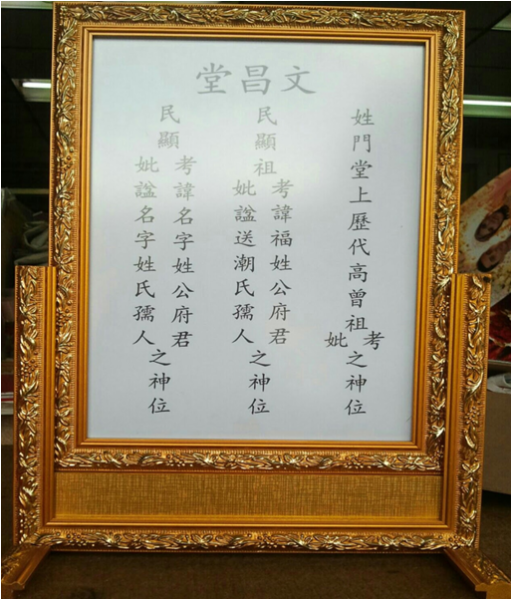 文昌堂
姓門堂上歷代高曾祖考妣之神位
民顯祖
考諱福姓公府君
妣諡送潮氏孺人
之神位
民顯
考諱名字姓公府君
妣諡名字姓氏孺人
之神位